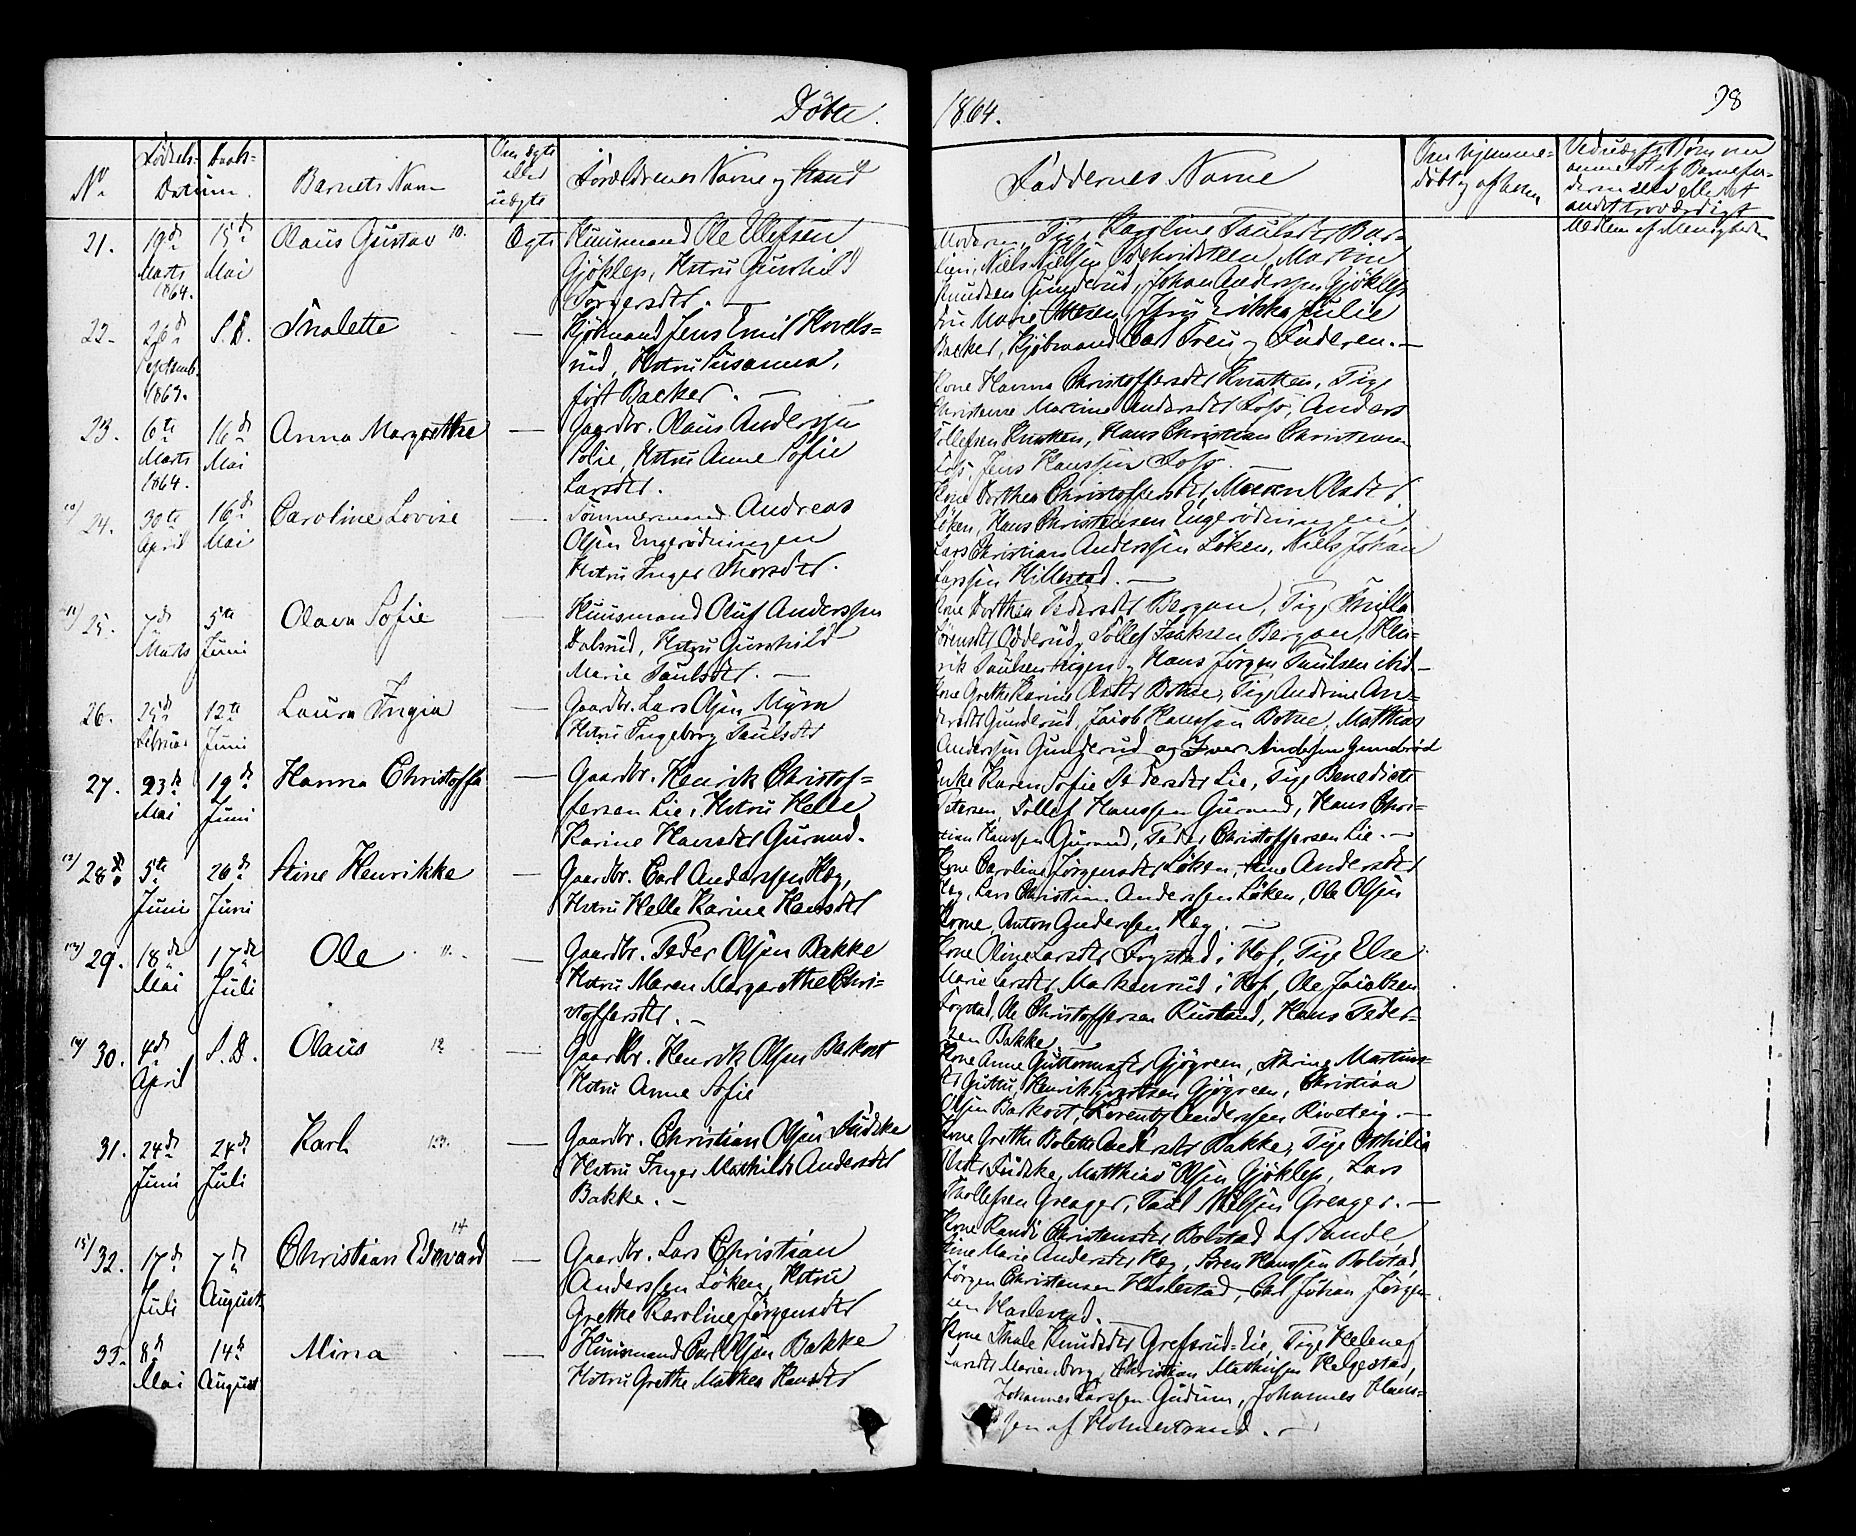 Døbte.
1864.
98
No
Fødsels-
Daabs-
Datum.
Barnets Navn
Om ægte
eller
uægte
Forældrenes Navne og Stand
Faddernes Navne
Om hjemme-
døbt og af hvem
andet troværdigt
Medlem af Menigheden
21.
19de
Marts
1864.
15de
Mai
Olaus Gustav
10.
Ægte
Huusmand Ole Ellefsen
Gjøklep, Hstru Gunhild
Torgersdtr. —
Moderen, Pige Karoline Paulsdtr
Knudsen Gunderud, Johan Anderssen Gjøklep
22.
26de
Septemb.
1863.
S.D.
Thalette
—
Kjøbmand Jens Emil Hovels-
rud, Hstru Susanna,
født Backer. —
Fru Marie Ottesen, Jfru Erikka Julie
Backer, Kjøbmand Carl Freu og Faderen. —
23.
6te
Marts
1864.
16de
Mai
Anna Margrethe
—
Gaardbr. Olaus Anderssen
Solie, Hstru Anne Sofie
Larsdtr.
Kone Hanna Christoffersdtr Knatten, Pige
Christense Martine Andersdtr Foss, Anders
Tollefsen Knatten, Hans Christian Christensen
Foss, Jens Hanssen Foss.
24.
30te
April
16de
Mai
Caroline Lovise
—
Tømmermand Andreas
Olsen Engerødningen
Hstru Inger Thorsdtr.
Kone Dorthea Christoffersdtr, Maren Olsdtr
Løken, Hans Christensen Engerødningen,
Lars Christian Anderssen Løken, Niels Johan
Larssen Hillestad. —
11/ 25.
7de
Marts
5te
Juni
Olava Sofie
—
Huusmand Oluf Anderssen
Dalsrud, Hstru Gunhild
Marie Paulsdtr. —
Kone Dorthea Pedersdtr Bergan, Pige Pernille
Sørensdtr Odderud, Tollef Isaksen Bergan, Hen-
rik Paulsen Eigen og Hans Jørgen Paulsen ibid —
26.
25de
Februar
12te
Juni
Laura Ingia
—
Gaardbr. Lars Olsen Myra
Hstru Ingeborg Paulsdtr
Kone Grethe Karine Olsdtr Botne, Pige Andrine An-
dersdtr Gunderud, Jacob Hanssen Botne, Matthias
Anderssen Gunderud og Iver Andersen Gunderød
27.
23de
Mai
19de
Juni
Hanna Christoffa
—
Gaardbr. Henrik Christof-
fersen Lie, Hstru Helle
Karine Hansdtr Gurand.
Enke Karen Sofie Pedersdtr Lie, Pige Benedicte
Petersen, Tollef Hanssen Gurand, Hans Chri-
stian Hanssen Gurand, Peder Christoffersen Lie. —
12/ 28.
5te
Juni
26de
Juni
Stine Henrikke
—
Gaardbr. Carl Anderssen Hæg,
Hstru Helle Karine Hansdtr
Kone Caroline Jørgensdtr Løken, Stine Andersdtr
Hæg, Lars Christian Anderssen Løken, Ole Olsen
Krone, Anton Anderssen Hæg. —
13/ 29.
18de
Mai
17de
Juli
Ole
11.
—
Gaardbr. Peder Olsen Bakke
Hstru Maren Margarethe Chri-
stoffersdtr. —
Kone Oline Larsdtr Fogstad i Hof, Pige Else
Marie Larsdtr Markenrud i Hof, Ole Jacobsen
Fogstad, Ole Christoffersen Rustand, Hans Peder-
sen Bakke. —
14/ 30.
4de
April
S.D.
Olaus
12
—
Gaardbr. Henrik Olsen Barkost
Hstru Anne Sofie
Kone Anne Guttormsdtr Gjøgreen, Thrine Martins-
Olsen Barkost, Lorentz Anderssen Rivoteig. —
31.
24de
Juni
24de
Juli
Karl
13.
—
Gaardbr. Christian Olsen Fudska
Hstru Inger Mathilde Andersdtr
Bakke. —
Kone Grethe Bolette Andersdtr Bakke, Pige Othilia
Olsdtr Fudske, Matthias Olsen Gjøklep, Lars
Thollefsen Greager, Paul Nielsen Greager. —
15/ 32.
17de
Juli
7de
August
Christian Edvard
14
—
Gaardbr. Lars Christian
Anderssen Løken, Hstru
Grethe Karoline Jørgensdtr
Kone Randi Christensdtr Bolstad af Sande
Stine Marie Andersdtr Hæg, Søren Hanssen Bolstad,
Jørgen Christensen Haslestad, Carl Johan Jørgen-
sen Haslestad. —
33.
8de
Mai
14de
August
Mina
—
Huusmand Carl Olsen Bakke
Hstru Grethe Mathea Hansdtr
Kone Thale Knudsdtr Grefsrud-Eie, Pige Helene
Larsdtr Marienborg, Christian Mathisen Helgestad,
Johannes Larssen Gudum, Johannes Hans-
sen af Holmestrand. —